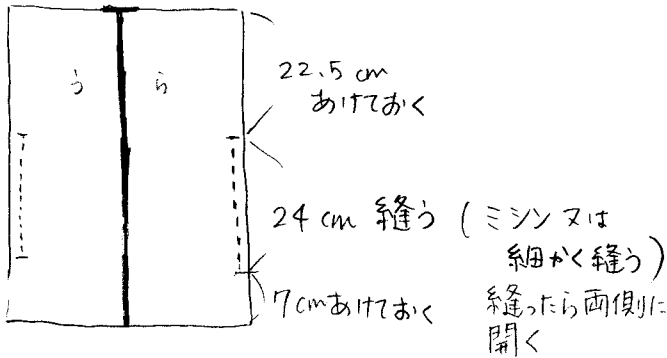 うら
22.5cm
あけておく
24cm 縫う (ミシン又は
細かく縫う)
7cmあけておく
縫ったら両側に
開く